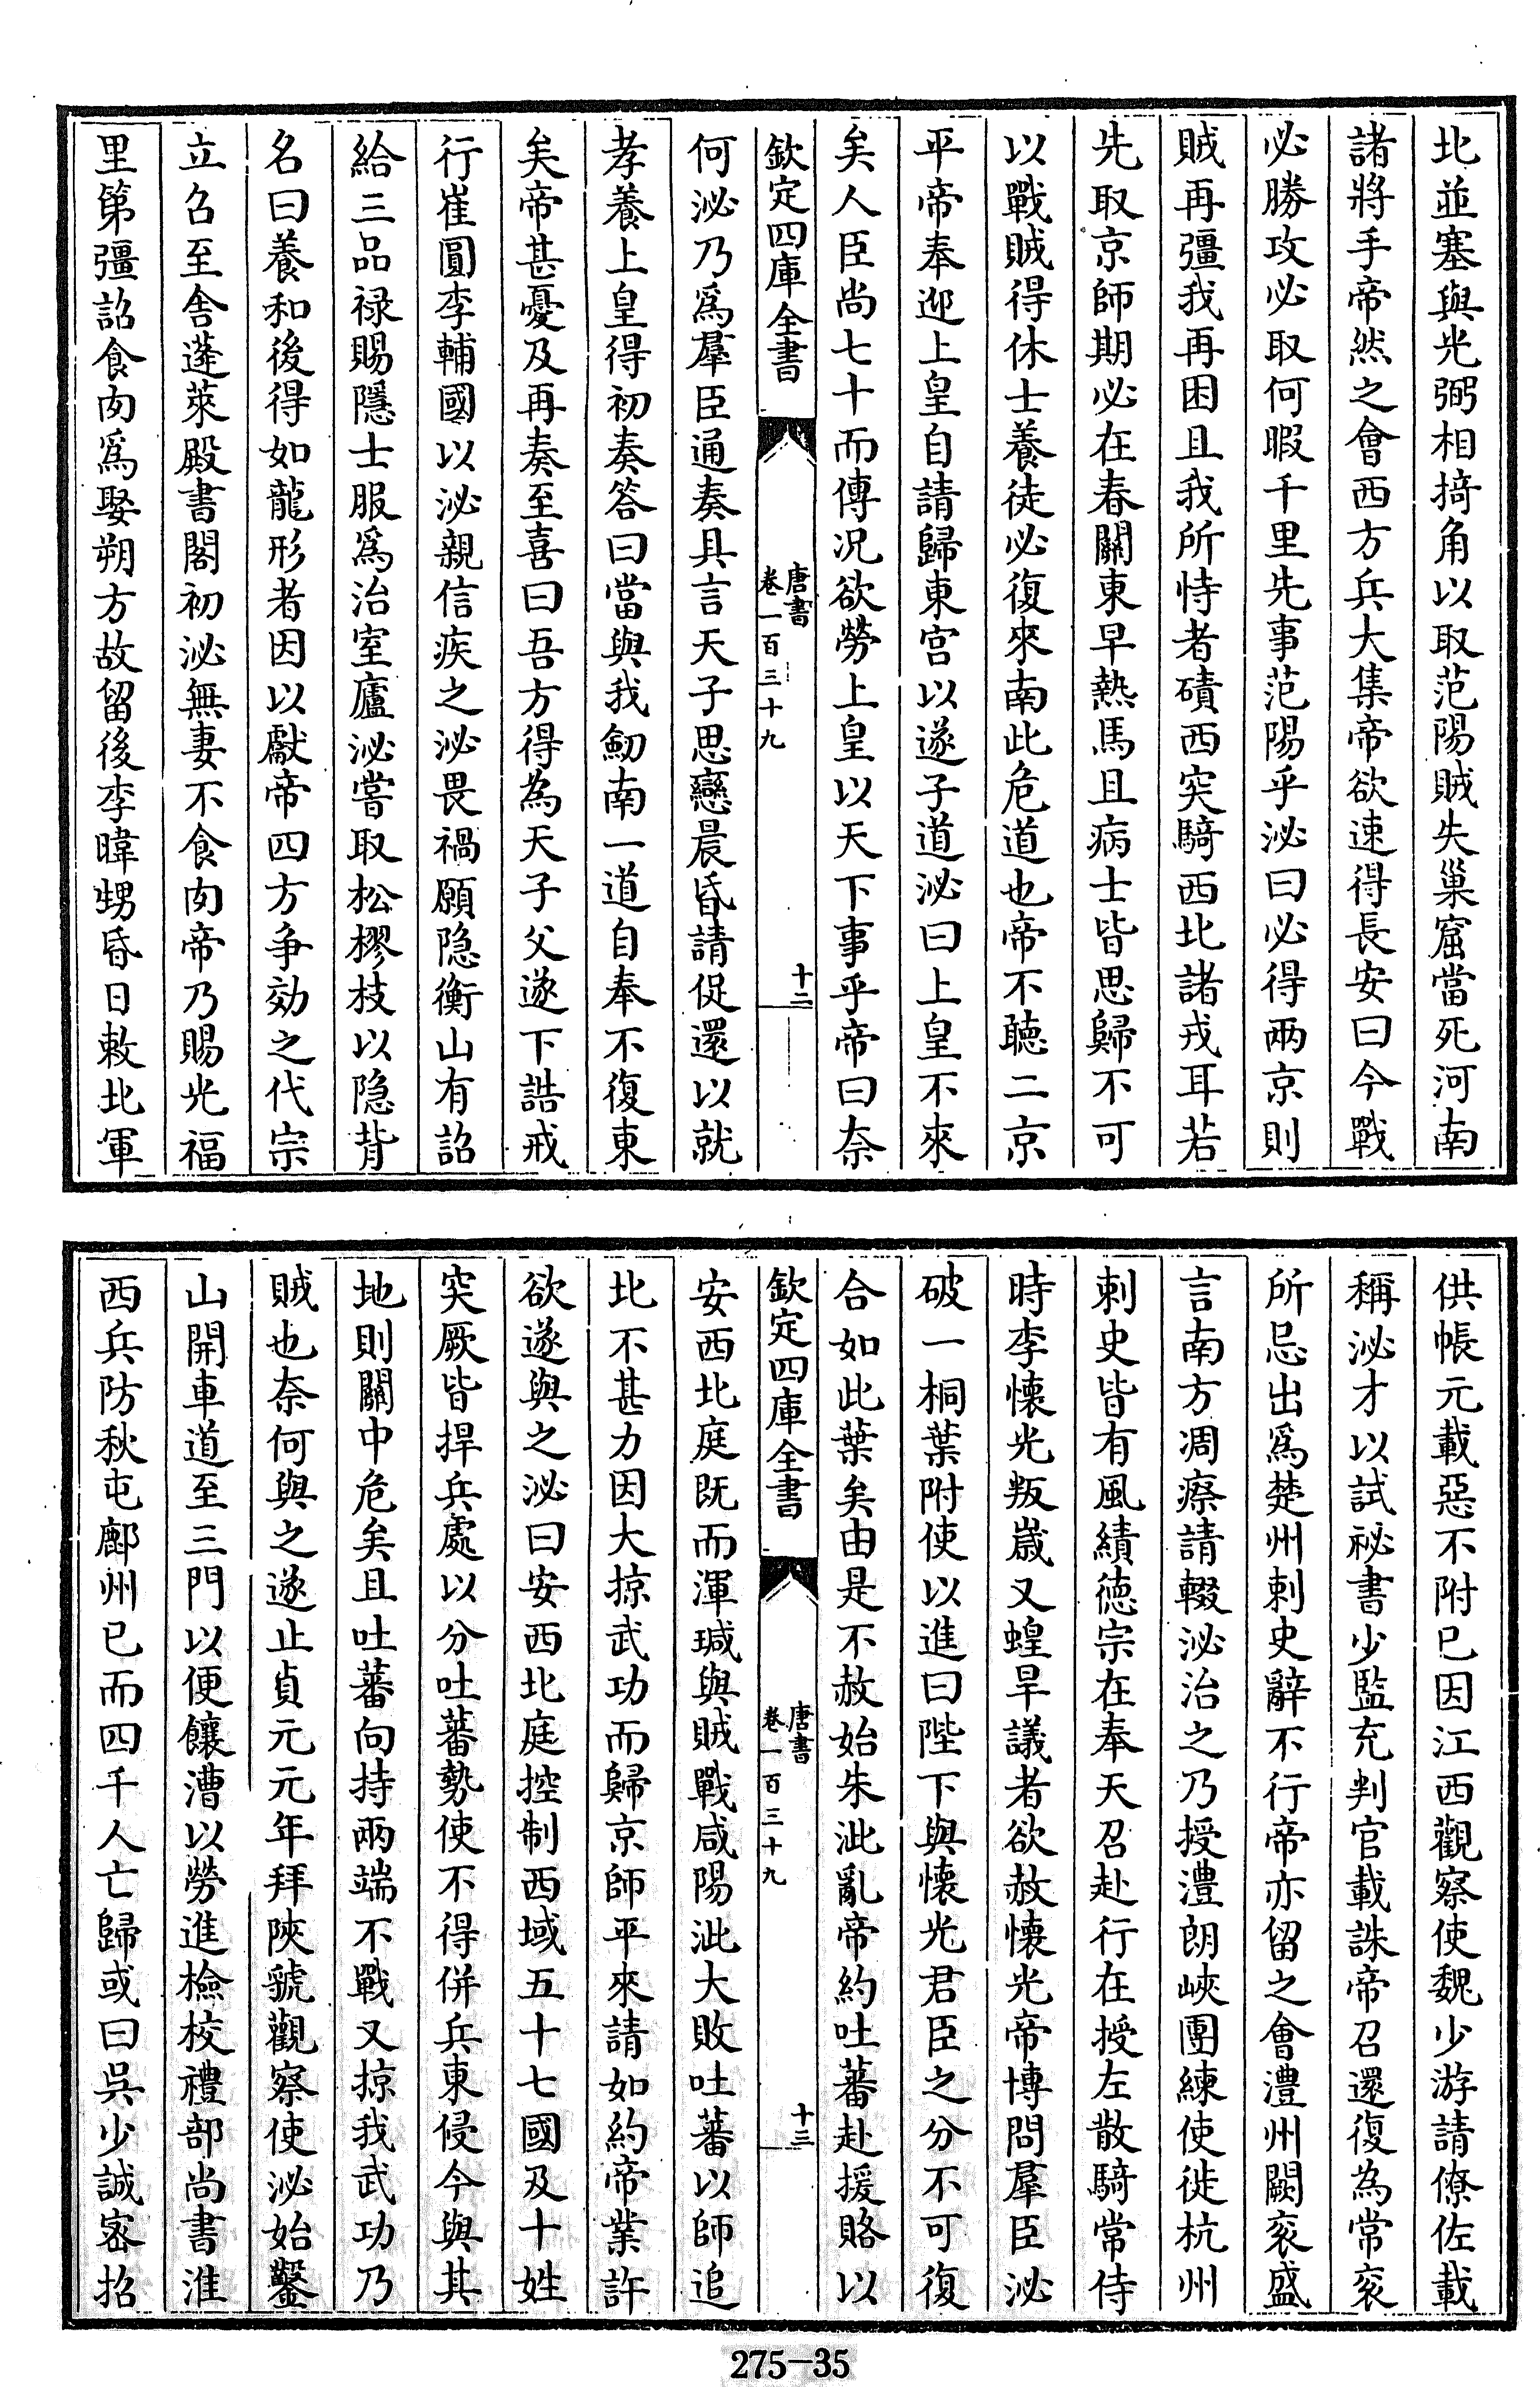 北並塞與光弼相掎角以取范陽賊失巢窟當死河南
諸將手帝然之會西方兵大集帝欲速得長安曰今戰
必勝攻必取何暇千里先事范陽乎泌曰必得兩京則
賊再彊我再困且我所恃者磧西突騎西北諸戎耳若
先取京師期必在春關東早熱馬且病士皆思歸不可
以戰賊得休士養徒必復來南此危道也帝不聽二京
平帝奉迎上皇自請歸東宮以遂子道泌曰上皇不來
矣人臣尚七十而傳况欲勞上皇以天下事乎帝曰奈
欽定四庫全書
唐書
卷一百三十九
十二
何泌乃爲羣臣通奏具言天子思戀晨昏請促還以就
孝養上皇得初奏答曰當與我劒南一道自奉不復東
矣帝甚憂及再奏至喜曰吾方得為天子父遂下誥戒
行崔圓李輔國以泌親信疾之泌畏禍願隐衡山有詔
給三品禄賜隱士服爲治室廬泌嘗取松樛枝以隐背
名曰養和後得如龍形者因以獻帝四方爭効之代宗
立召至舍蓬萊殿書閣初泌無妻不食肉帝乃賜光福
里第彊詔食肉爲娶朔方故留後李暐甥昏日敕北軍
供帳元載惡不附已因江西觀察使魏少游請僚佐載
稱泌才以試祕書少監充判官載誅帝召還復為常衮
所忌出爲楚州刺史辭不行帝亦留之會澧州闕衮盛
言南方凋瘵請輟泌治之乃授澧朗峽團練使徙杭州
刺史皆有風績德宗在奉天召赴行在授左散騎常侍
時李懷光叛歲又蝗旱議者欲赦懷光帝博問羣臣泌
破一桐葉附使以進曰陛下與懷光君臣之分不可復
合如此葉矣由是不赦始朱泚亂帝約吐蕃赴援賂以
欽定四庫全書
唐書
卷一百三十九
十三
安西北庭既而渾瑊與賊戰咸陽泚大敗吐蕃以師追
北不甚力因大掠武功而歸京師平來請如約帝業許
欲遂與之泌曰安西北庭控制西域五十七國及十姓
突厥皆捍兵處以分吐蕃勢使不得併兵東侵今與其
地則關中危矣且吐蕃向持兩端不戰又掠我武功乃
賊也奈何與之遂止貞元元年拜陝虢觀察使泌始鑿
山開車道至三門以便饟漕以勞進檢校禮部尚書淮
西兵防秋屯鄜州已而四千人亡歸或曰吳少誠密招
275-35